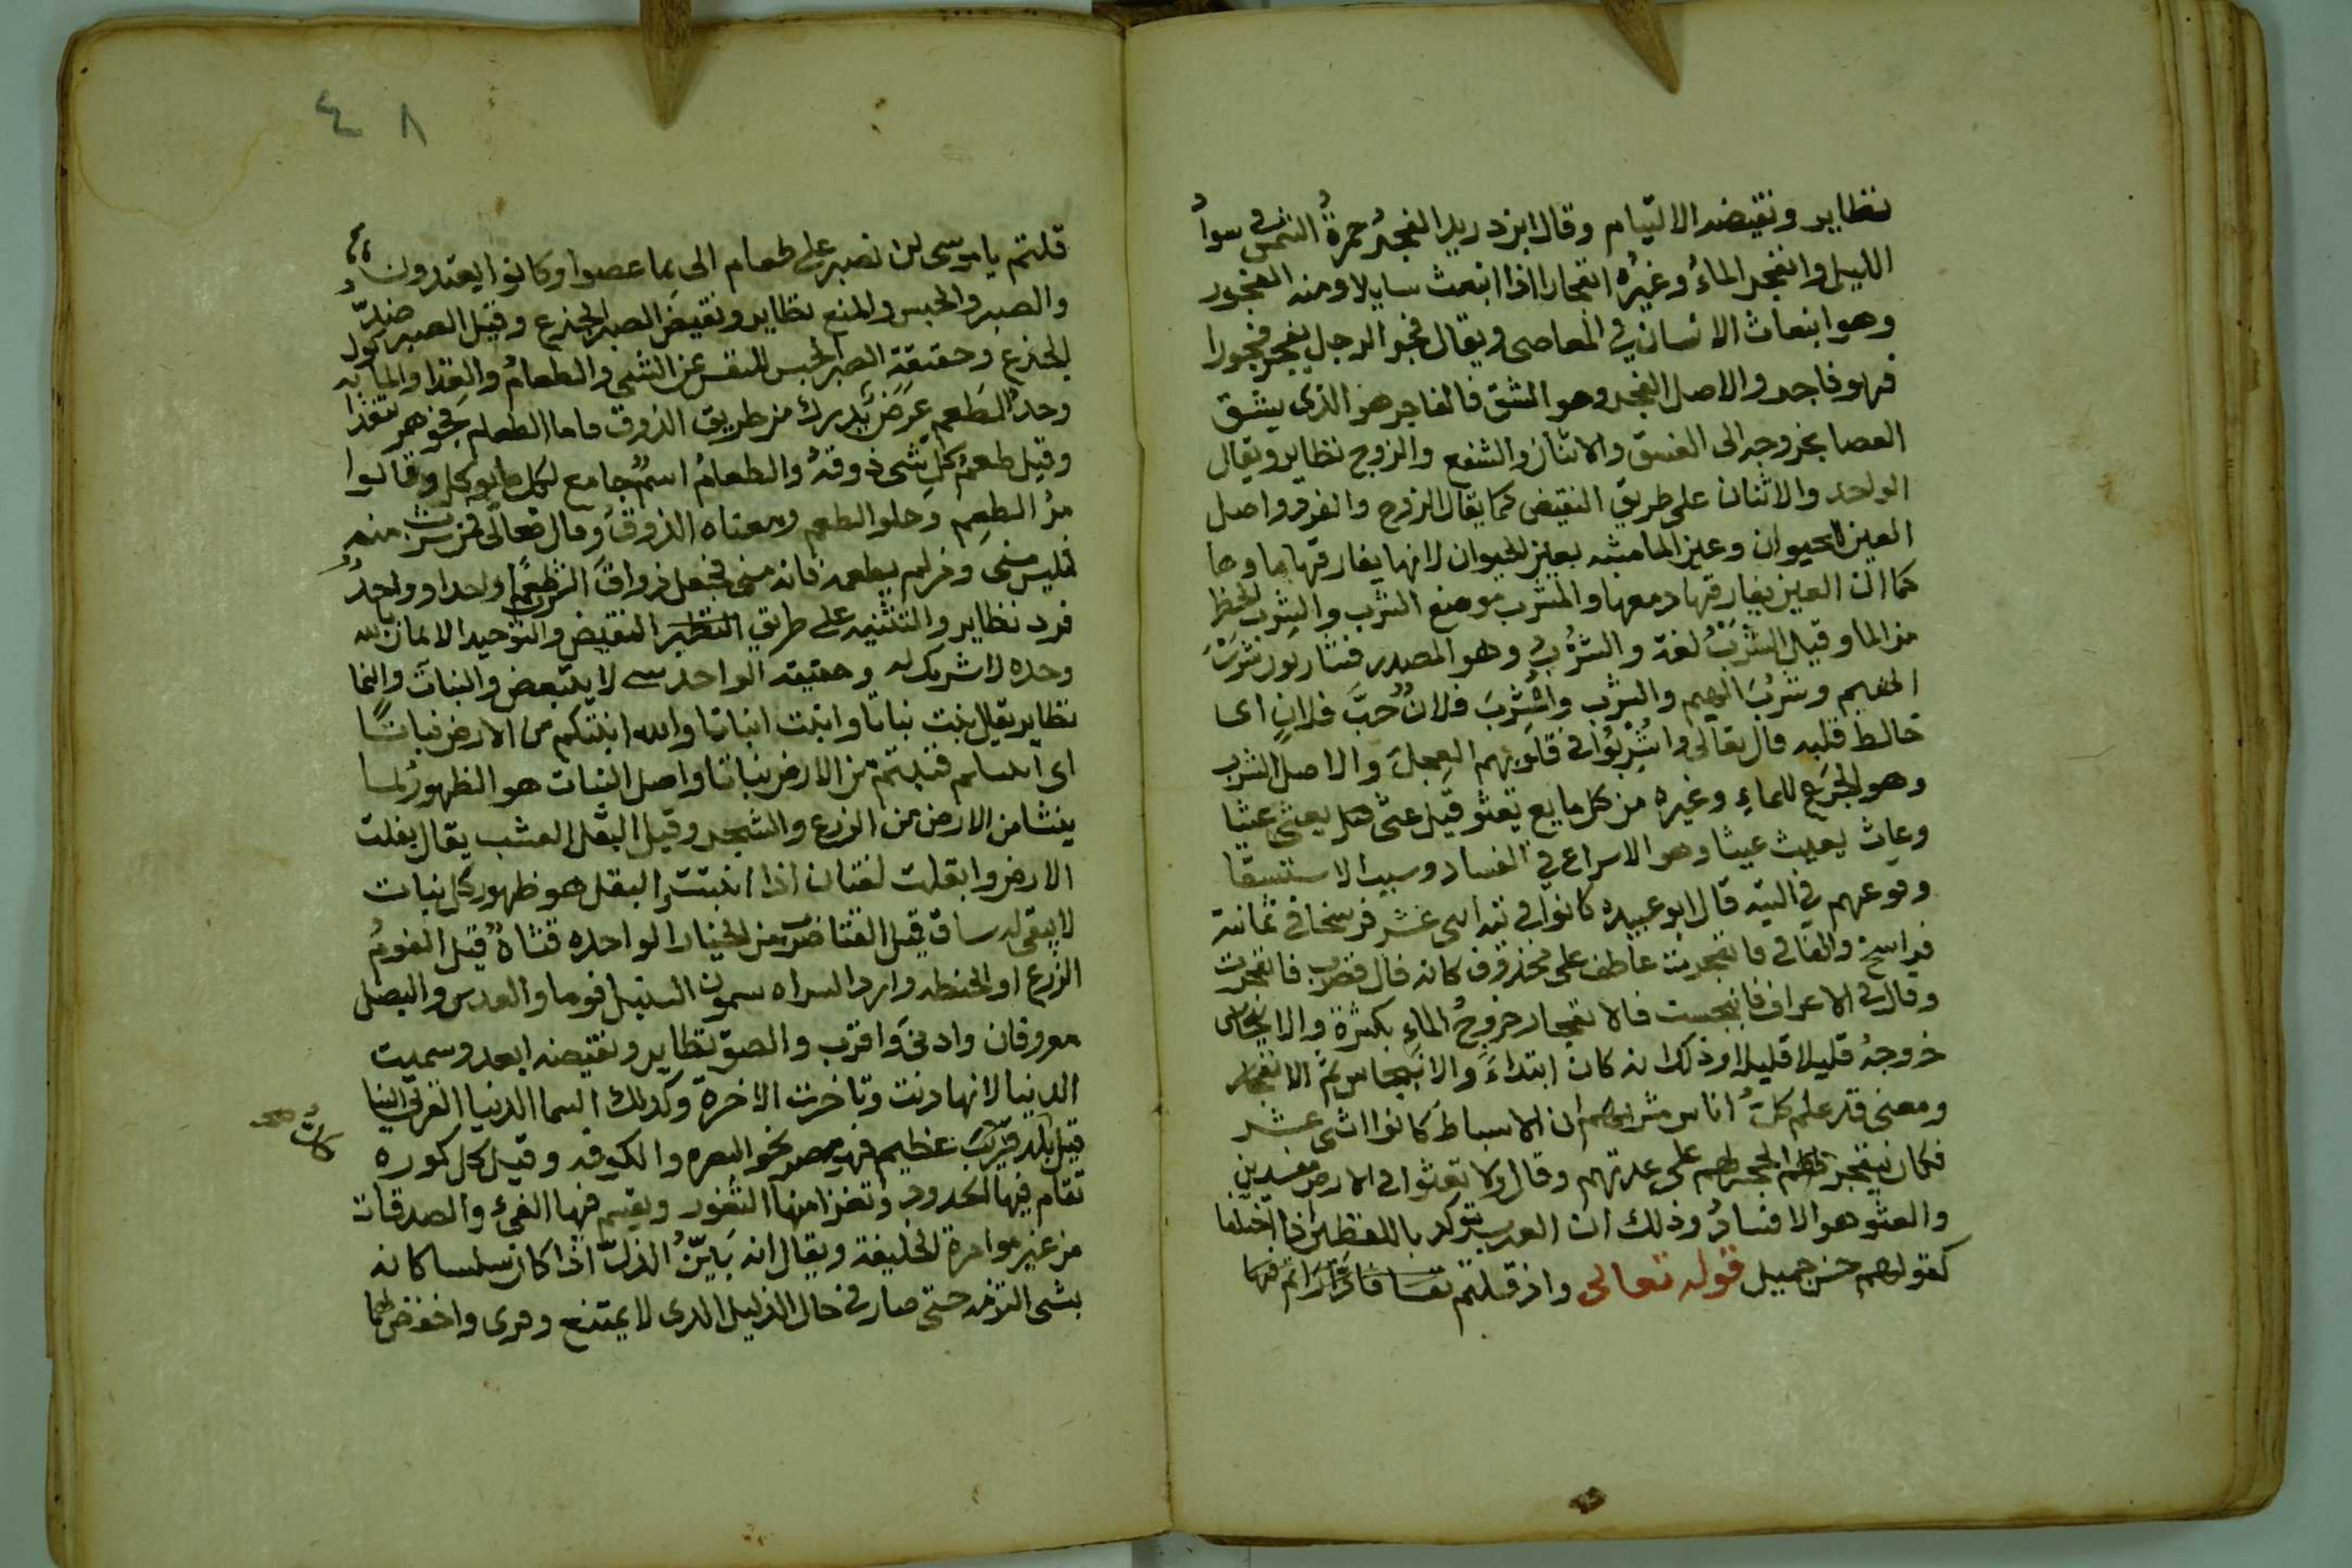 نظاير ونقيضه الالتيام وقال ابن دريد الفجر حمرة الشمس في سواد
الليل وانفجر الماء وغيره انفجارا اذا انبعث سايلا ومنه الفجور
وهو انبعاث الانسان في المعاصي ويقال فجر الرجل يفجر فجورا
فهو فاجر والاصل الفجر وهو الشق فالفاجر هو الذي يشق
العصا بخروجه الى الفسق والاثنان والشفع والزوج نظاير ويقال
الواحد والاثنان على طريق النقيض كما يقال الزوج والفرد واصل
العين الحيوان وعين الما مشبه بعين الحيوان لانها يفارقها ماوها
كما ان العين يفارقها دمعها والمشرب موضع الشرب والشرب الحظ
من الما وقيل الشرب لغة والشرب وهو المصدر فشاربون شرب
الهيم وشرب الهيم والشرب واشرب فلان حب فلان اي
خالط قلبه قال تعالى واشربوا في قلوبهم العجل والاصل الشرب
وهو الجرع للماء وغيره من كل مايع تعثو قيل عثى يعثى عثيا
وعاث يعيث عيثا وهو الاسراع في الفساد وسبب الاستسقا
وقوعهم في التيه قال ابو عبيده كانوا في تيه اثنى عشر فرسخا في ثمانية
فراسخ والفا في فانفجرت عاطف على محذوف كانه قال فضرب فانفجرت
وقال في الاعراف فانبجست فالانفجار خروج الماء بكثرة والانبجاس
خروجه قليلا قليلا وذلك انه كان ابتداء والانبجاس ثم الانفجار
ومعنى قد علم كل اناس مشربهم ان الاسباط كانوا اثنى عشر
فكان يتفجر لهم الحجر لهم على عدتهم وقال ولا تعثوا في الارض مفسدين
والعثو هو الافساد وذلك ان العرب تؤكد باللفظين اذا اختلفا
كقولهم حسن جميل قوله تعالى واذ قتلتم نفسا فادارأتم فيها
٤٨
قلتم يا موسى لن نصبر على طعام الى بما عصوا وكانوا يعتدون
والصبر والحبس والمنع نظاير ونقيض الصبر الجزع وقيل الصبر ضد
الجزع وحقيقة الصبر الحبس للنفس عن الشي والطعام والغذا والماكول
وحد الطعم عرض يدرك من طريق الذوق فاما الطعام فجوهر يتغذا به
وقيل طعم كل شي ذوقه والطعام اسم جامع لكل ما يوكل وقالوا
مر الطعم وحلو الطعم ومعناه الذوق وقال تعالى فمن شرب منه
فليس منى ومن لم يطعمه فانه منى فجعل ذواق الشرب طعما واحدا وواحد
فرد نظاير والتثنيه على طريق النقيض والتوحيد الايمان بالله
وحده لا شريك له وحقيقه الواحد شي لا يتبعض والنبات والنما
نظاير يقال نبت نباتا وانبت انباتا والله انبتكم من الارض نباتا
اي فنبتم من الارض نباتا واصل النبات هو الظهور لما
ينشا من الارض من الزرع والشجر وقيل البقل العشب يقال بقلت
الارض وابقلت لغتان اذا انبتت البقل هو ظهور كل نبات
لا يبقى له ساق قيل القثا ضرب من الخيار الواحده قثاة قيل الفوم
الزرع او الحنطه وازد السراه يسمون السنبل فوما والعدس والبصل
معروفان وادنى واقرب والصق نظاير ونقيضه ابعد وسميت
الدنيا لانها دنت وتاخرت الاخرة وكذلك السما الدنيا القربى الينا
قيل كل بلد عظيم فهو مصر نحو البصره والكوفه وقيل كل كوره
كان صح
تقام فيها الحدود وتغزا منها الثغور ويقسم فيها الفي والصدقات
من غير موامرة الخليفة ويقال انه بين الذل اذا كان سلسا كانه
بشي التزمه حتى صار في حال الذليل الذي لا يمتنع وقرى واخفض لهما